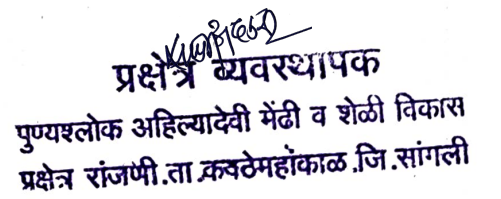 प्रक्षेत्र व्यवस्थापक
पुण्यश्लोक अहिल्यादेवी मेंढी व शेळी विकास
प्रक्षेत्र रांजणी.ता.कवठेमहांकाळ.जि.सांगली